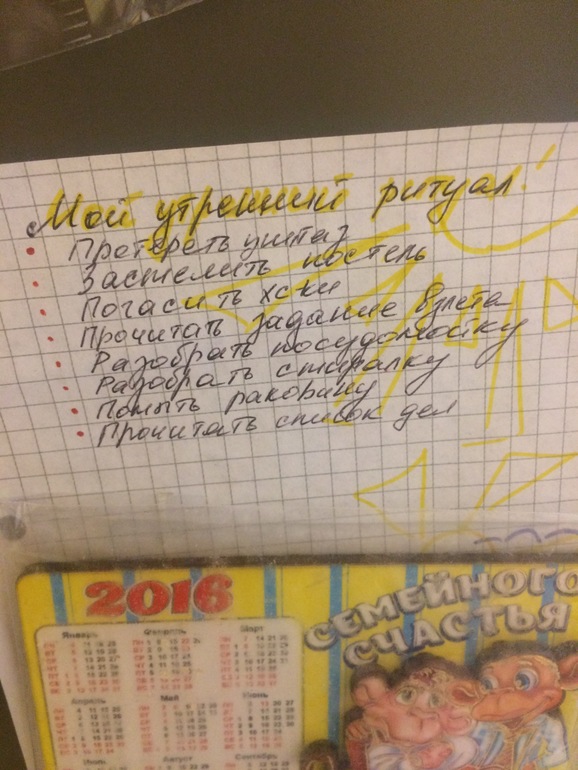 Мой утренний ритуал!
Протереть унитаз
Застелить постель
Погасить хски
Прочитать задание взлёта
Разобрать посудомойку
Разобрать стиралку
Помыть раковину
Прочитать список дел
2016
СЕМЕЙНОГО
СЧАСТЬЯ
Январь Февраль Март
Апрель Май Июнь
Июль Август Сентябрь